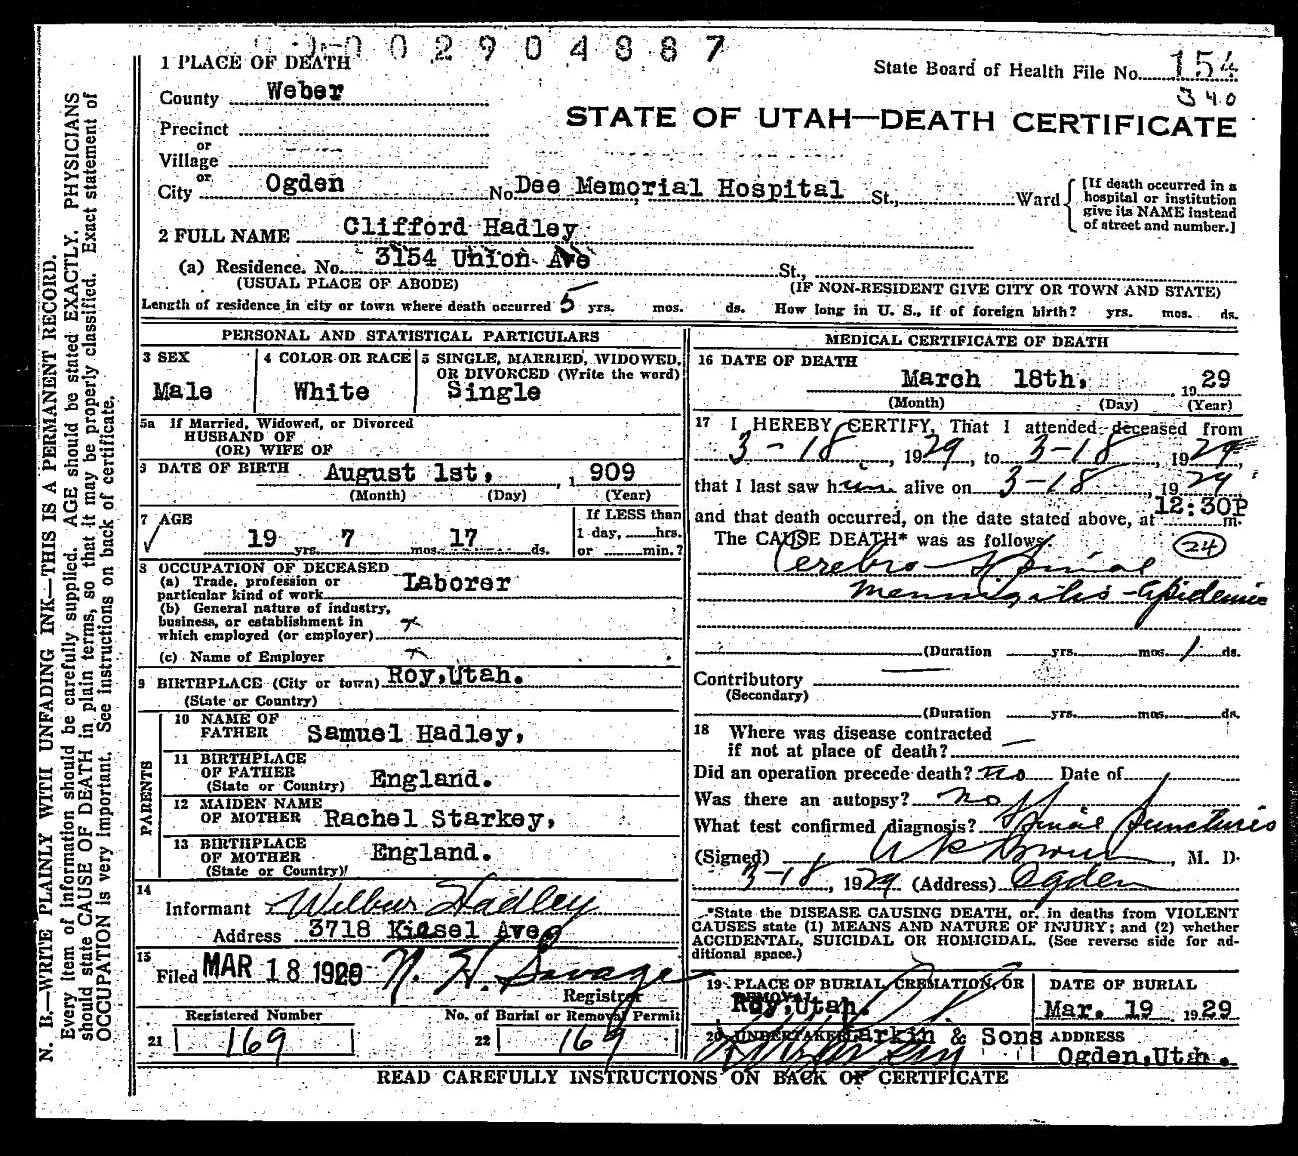 0 0 2 9 0 4 8 8 7
1 PLACE OF DEATH
State Board of Health File No. 154
340
County Weber
STATE OF UTAH—DEATH CERTIFICATE
Precinct
or
Village
or
City Ogden No. Dee Memorial Hospital St., Ward
[If death occurred in a
hospital or institution
give its NAME instead
of street and number.]
2 FULL NAME Clifford Hadley
(a) Residence. No. 3154 Union Ave St.,
(USUAL PLACE OF ABODE) (IF NON-RESIDENT GIVE CITY OR TOWN AND STATE)
Length of residence in city or town where death occurred 5 yrs. mos. ds. How long in U. S., if of foreign birth? yrs. mos. ds.
PERSONAL AND STATISTICAL PARTICULARS
3 SEX
Male
4 COLOR OR RACE
White
5 SINGLE, MARRIED, WIDOWED,
OR DIVORCED (Write the word)
Single
5a If Married, Widowed, or Divorced
HUSBAND OF
(OR) WIFE OF
6 DATE OF BIRTH August 1st, , 1909
(Month) (Day) (Year)
7 AGE
19 yrs. 7 mos. 17 ds.
If LESS than
1 day, hrs.
or min.?
8 OCCUPATION OF DECEASED
(a) Trade, profession or
particular kind of work Laborer
(b) General nature of industry,
business, or establishment in
which employed (or employer) x
(c) Name of Employer x
9 BIRTHPLACE (City or town) Roy, Utah.
(State or Country)
PARENTS
10 NAME OF
FATHER Samuel Hadley,
11 BIRTHPLACE
OF FATHER
(State or Country) England.
12 MAIDEN NAME
OF MOTHER Rachel Starkey,
13 BIRTHPLACE
OF MOTHER
(State or Country) England.
14
Informant Wilbur Hadley
Address 3718 Kiesel Ave,
15
Filed MAR 18 1929 N. H. Savage
Registrar
Registered Number
21 169
No. of Burial or Removal Permit
22 169
MEDICAL CERTIFICATE OF DEATH
16 DATE OF DEATH
March 18th, , 1929
(Month) (Day) (Year)
17 I HEREBY CERTIFY, That I attended deceased from
3-18, 1929, to 3-18, 1929,
that I last saw him alive on 3-18, 1929
and that death occurred, on the date stated above, at 12:30P m.
The CAUSE DEATH* was as follows:
24
Cerebro-Spinal
Meningitis - Epidemic
(Duration yrs. mos. 1 ds.
Contributory
(Secondary)
(Duration yrs. mos. ds.
18 Where was disease contracted
if not at place of death? —
Did an operation precede death? no Date of
Was there an autopsy? no
What test confirmed diagnosis? Spinal punctures
(Signed) , M. D.
3-18, 1929 (Address) Ogden
*State the DISEASE CAUSING DEATH, or, in deaths from VIOLENT
CAUSES state (1) MEANS AND NATURE OF INJURY; and (2) whether
ACCIDENTAL, SUICIDAL OR HOMICIDAL. (See reverse side for ad-
ditional space.)
19 PLACE OF BURIAL, CREMATION, OR
REMOVAL
Roy, Utah.
DATE OF BURIAL
Mar. 19 1929
20 UNDERTAKER Larkin & Sons
ADDRESS
Ogden, Utah.
READ CAREFULLY INSTRUCTIONS ON BACK OF CERTIFICATE
N. B.—WRITE PLAINLY WITH UNFADING INK—THIS IS A PERMANENT RECORD.
Every item of information should be carefully supplied. AGE should be stated EXACTLY. PHYSICIANS
should state CAUSE OF DEATH in plain terms, so that it may be properly classified. Exact statement of
OCCUPATION is very important. See instructions on back of certificate.